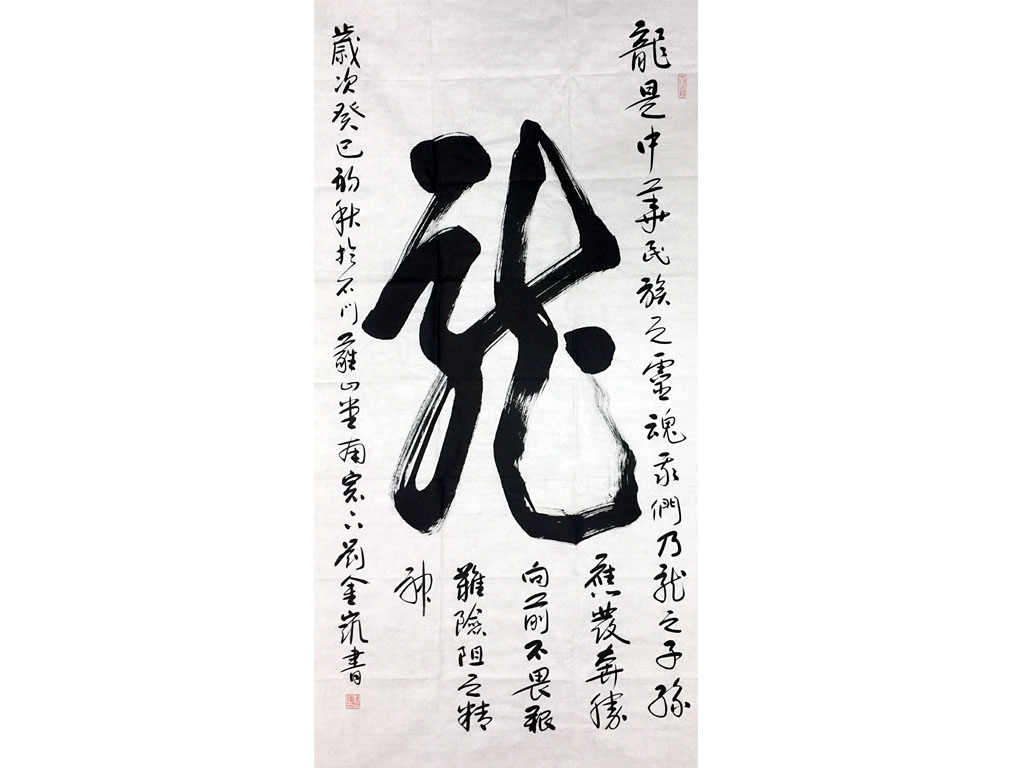 龍
龍是中華民族之靈魂我們乃龍之子孫
應發奔騰
向前不畏艱
難險阻之精
神
歲次癸巳秋於石門山堂南窗下劉金凱書